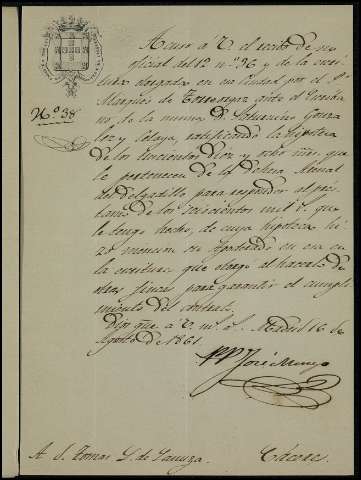 Acuso a V. el recibo de su
oficial del 12 nº 36 y de la escri
tura otorgada en esa Ciudad por el Sr.
Nº 38
Marqués de Torreorgaz ante el Escriba
no de la misma D. Gonza
lez y Celaya, ratificando la hipoteca
de los trescientos diez y ocho mrs. que
le pertenecen de la Dehesa Arenal
del Delgadillo para responder al prés
tamo de los trescientos mil r. que
le tengo hecho, de cuya hipoteca hi
zo mencion en
la escritura que otorgó al hacerlo de
otras fincas para garantir el cumpli
miento del contrato.
Dios gue. a V. m. a. Madrid 16 de
Agosto de 1861.
PP José
A S. Tomas G. de Lanuza. Cáceres.